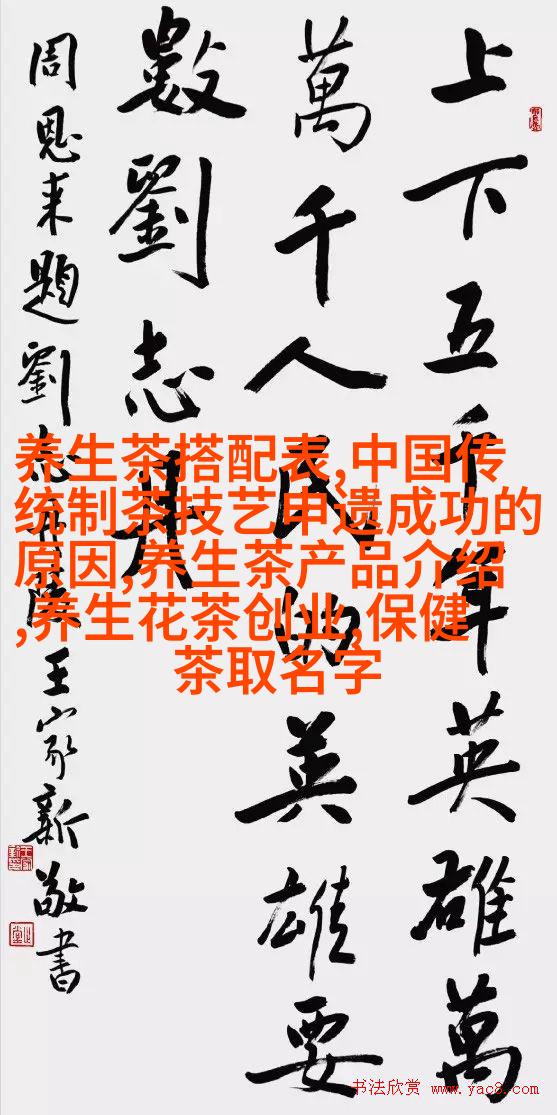 上下五千年英雄萬
萬千人民的英雄要
數劉志丹
周恩来題劉志丹陵王家新敬書
养生茶搭配表,中国传
统制茶技艺申遗成功的
原因,养生茶产品介绍
,养生花茶创业,保健
茶取名字
书法欣赏 www.yac8.com